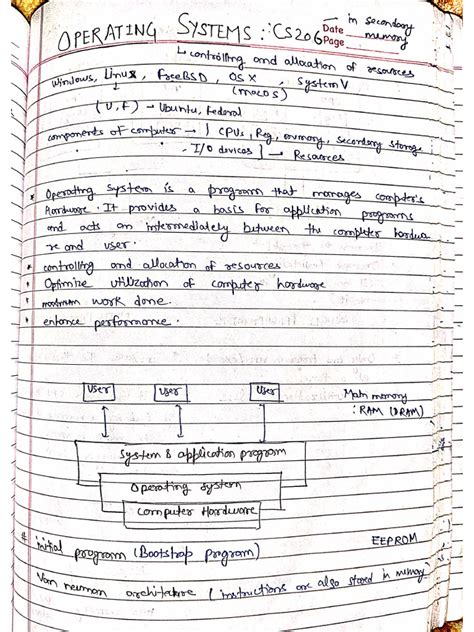 in secondary
OPERATING SYSTEMS :: CS206 Date memory
Page
↳ controlling and allocation of resources
Windows, Linux, FreeBSD, OS X, System V
(macOS)
(U, F) → Ubuntu, Federal
components of computer → ] CPUs, Reg, memory, secondary storage
- I/O devices ] → Resources
* Operating System is a program that manages computer's
Hardware. It provides a basis for application programs
and acts an intermediately between the computer hardwa
re and user.
* controlling and allocation of resources
* Optimize utilization of computer hardware
* work done.
* enhance performance.
User User User Main memory
: RAM (DRAM)
System & application program
Operating System
Computer Hardware
# initial program (Bootstrap program) EEPROM
Von neuman architecture (instructions are also stored in memory)